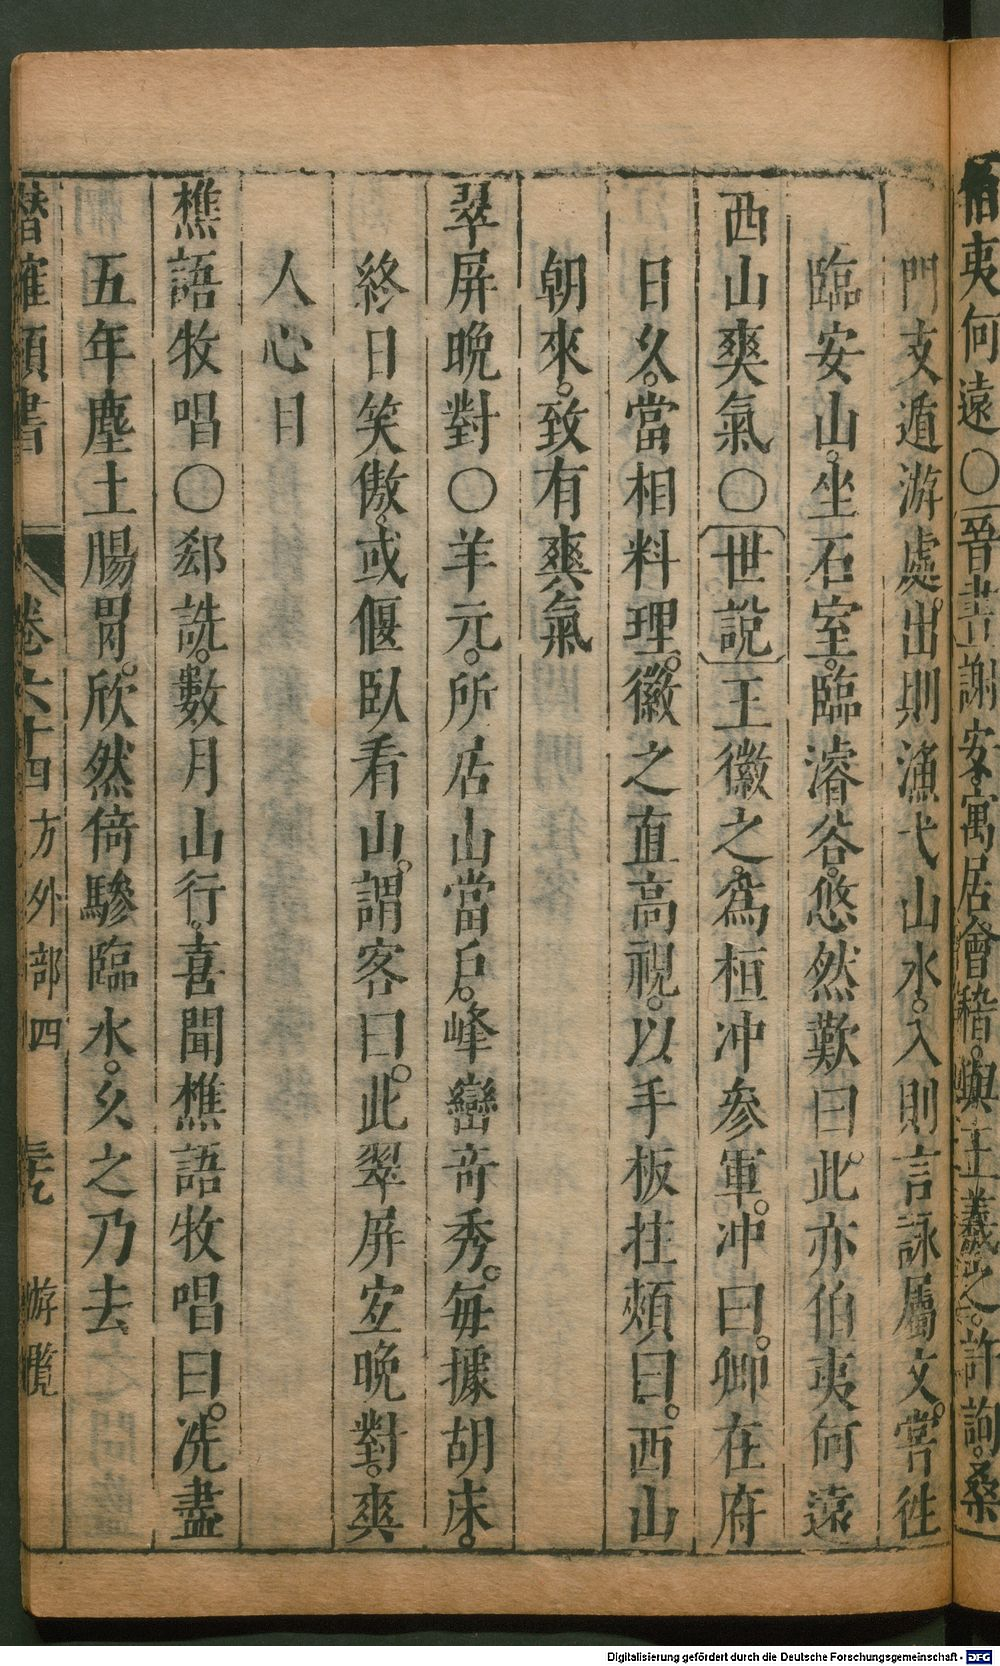 伯夷何遠○晉書謝安寓居會稽與王羲之許詢桑
門支遁游處出則漁弋山水入則言詠屬文嘗往
臨安山坐石室臨濬谷悠然歎曰此亦伯夷何遠
西山爽氣○世說王徽之為桓冲參軍冲曰卿在府
日久當相料理徽之直高視以手板拄頰曰西山
朝來致有爽氣
翠屏晚對○羊元所居山當戶峰巒奇秀每據胡床
終日笑傲或偃臥看山謂客曰此翠屏宜晚對爽
人心目
樵語牧唱○郄詵數月山行喜聞樵語牧唱曰洗盡
五年塵土腸胃欣然倚驂臨水久之乃去
潛確類書 卷六十四方外部四 游覽
Digitalisierung gefördert durch die Deutsche Forschungsgemeinschaft - DFG